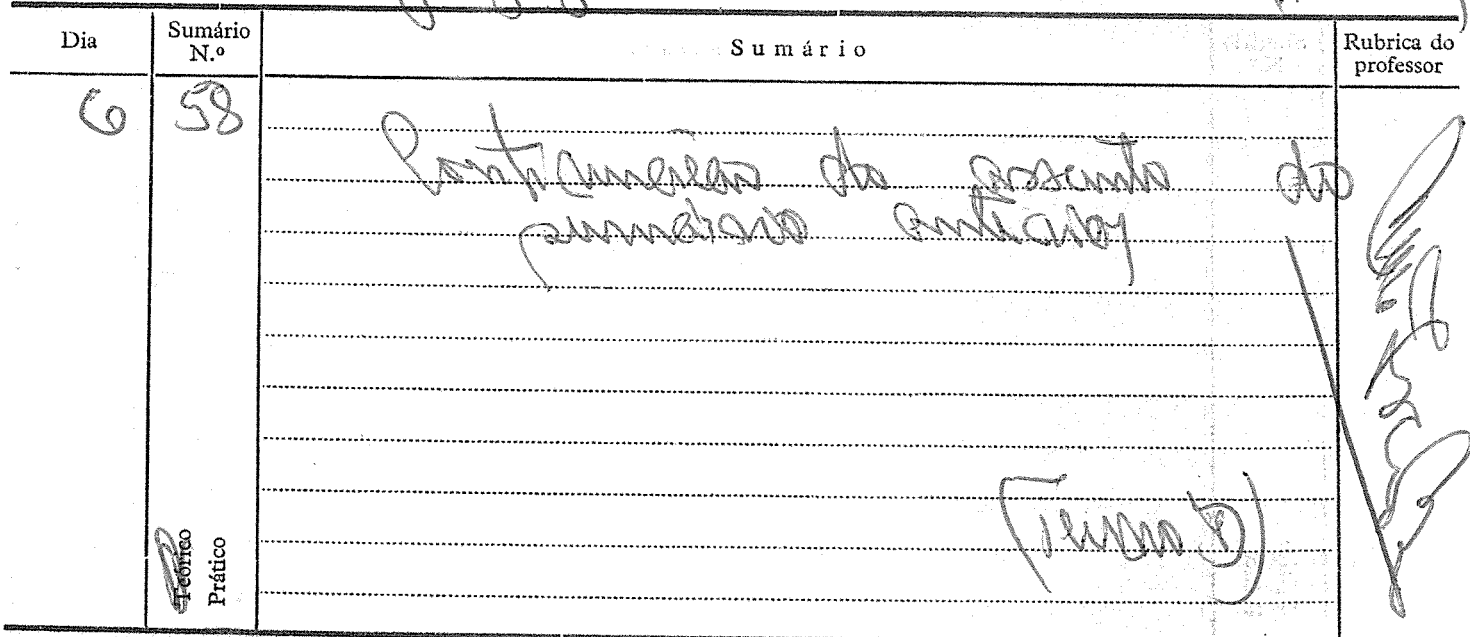 Dia Sumário N.º Sumário Rubrica do professor
6 58 Continuação do assunto do
sumário anterior
(Turma B)
Teórico
Prático